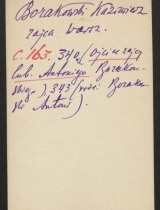 Borakowski Kazimierz
rajca warsz.
C. 163. 340 / Ojciec rajcy
lub. Antoniego Borakow-
skiego /, 343 / vide: Borakow-
ski Antoni /.